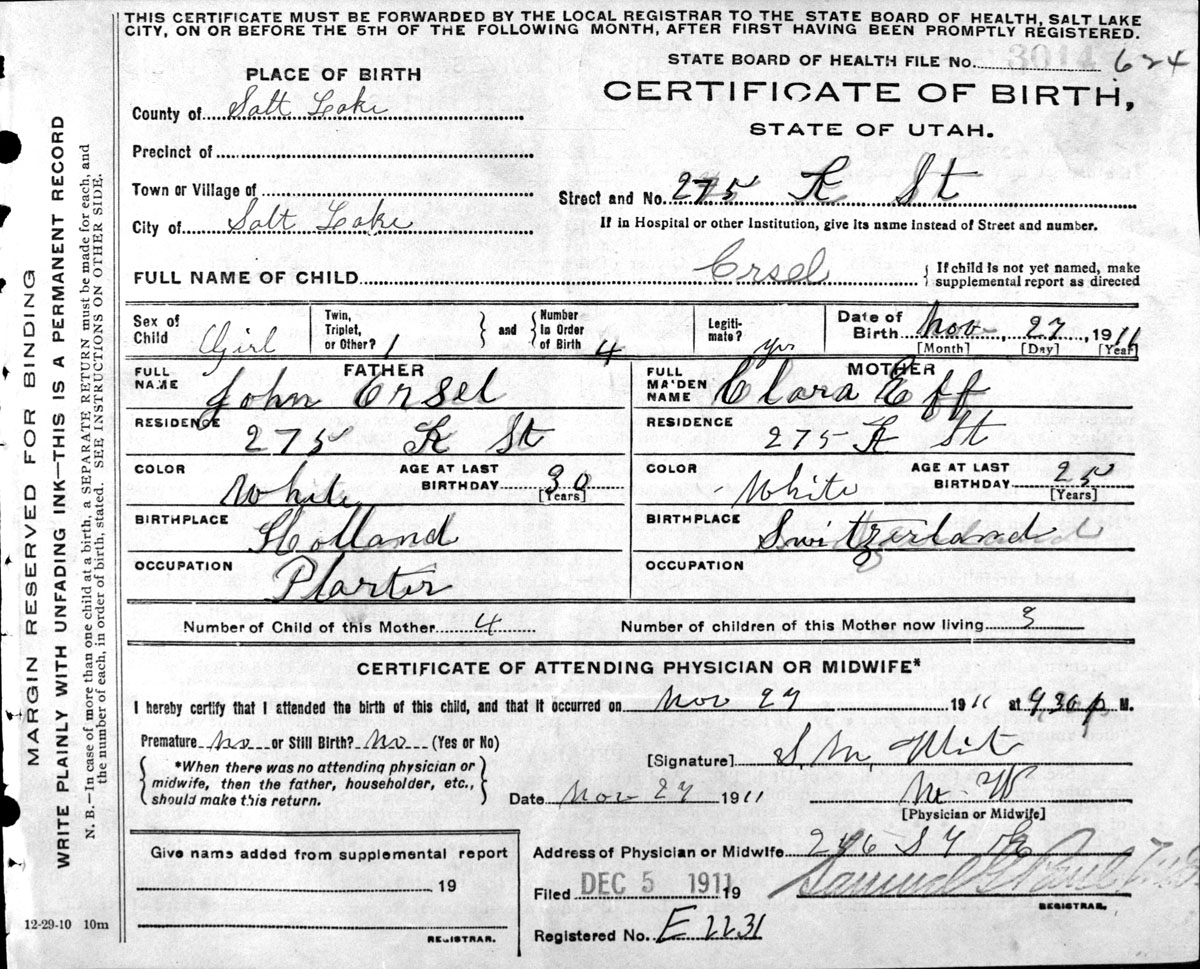 THIS CERTIFICATE MUST BE FORWARDED BY THE LOCAL REGISTRAR TO THE STATE BOARD OF HEALTH, SALT LAKE
CITY, ON OR BEFORE THE 5TH OF THE FOLLOWING MONTH, AFTER FIRST HAVING BEEN PROMPTLY REGISTERED.
STATE BOARD OF HEALTH FILE No. 3014 624
PLACE OF BIRTH
CERTIFICATE OF BIRTH,
County of Salt Lake
STATE OF UTAH.
Precinct of
Town or Village of
Street and No. 275 K St
City of Salt Lake
If in Hospital or other Institution, give its name instead of Street and number.
FULL NAME OF CHILD Ersel
If child is not yet named, make
supplemental report as directed
Sex of Child Girl
Twin, Triplet, or Other? 1
and
Number In Order of Birth 4
Legitimate? yes
Date of Birth Nov 27, 1911
[Month] [Day] [Year]
FATHER
FULL NAME John Ersel
MOTHER
FULL MAIDEN NAME Clara Eff
RESIDENCE 275 K St
RESIDENCE 275 K St
COLOR White
AGE AT LAST BIRTHDAY 30 [Years]
COLOR White
AGE AT LAST BIRTHDAY 25 [Years]
BIRTHPLACE Holland
BIRTHPLACE Switzerland
OCCUPATION Plarter
OCCUPATION
Number of Child of this Mother 4
Number of children of this Mother now living 3
CERTIFICATE OF ATTENDING PHYSICIAN OR MIDWIFE*
I hereby certify that I attended the birth of this child, and that it occurred on Nov 27 1911 at 9.30 p M.
Premature No or Still Birth? No (Yes or No)
*When there was no attending physician or
midwife, then the father, householder, etc.,
should make this return.
[Signature] S. M.
Date Nov 27 1911
M. W
[Physician or Midwife]
Give name added from supplemental report
19
REGISTRAR.
Address of Physician or Midwife
Filed DEC 5 1911 19
Samuel G Paul
REGISTRAR.
Registered No. E 2231
12-29-10 10m
MARGIN RESERVED FOR BINDING
WRITE PLAINLY WITH UNFADING INK—THIS IS A PERMANENT RECORD
N. B.—In case of more than one child at a birth, a SEPARATE RETURN must be made for each, and
the number of each, in order of birth, stated. SEE INSTRUCTIONS ON OTHER SIDE.